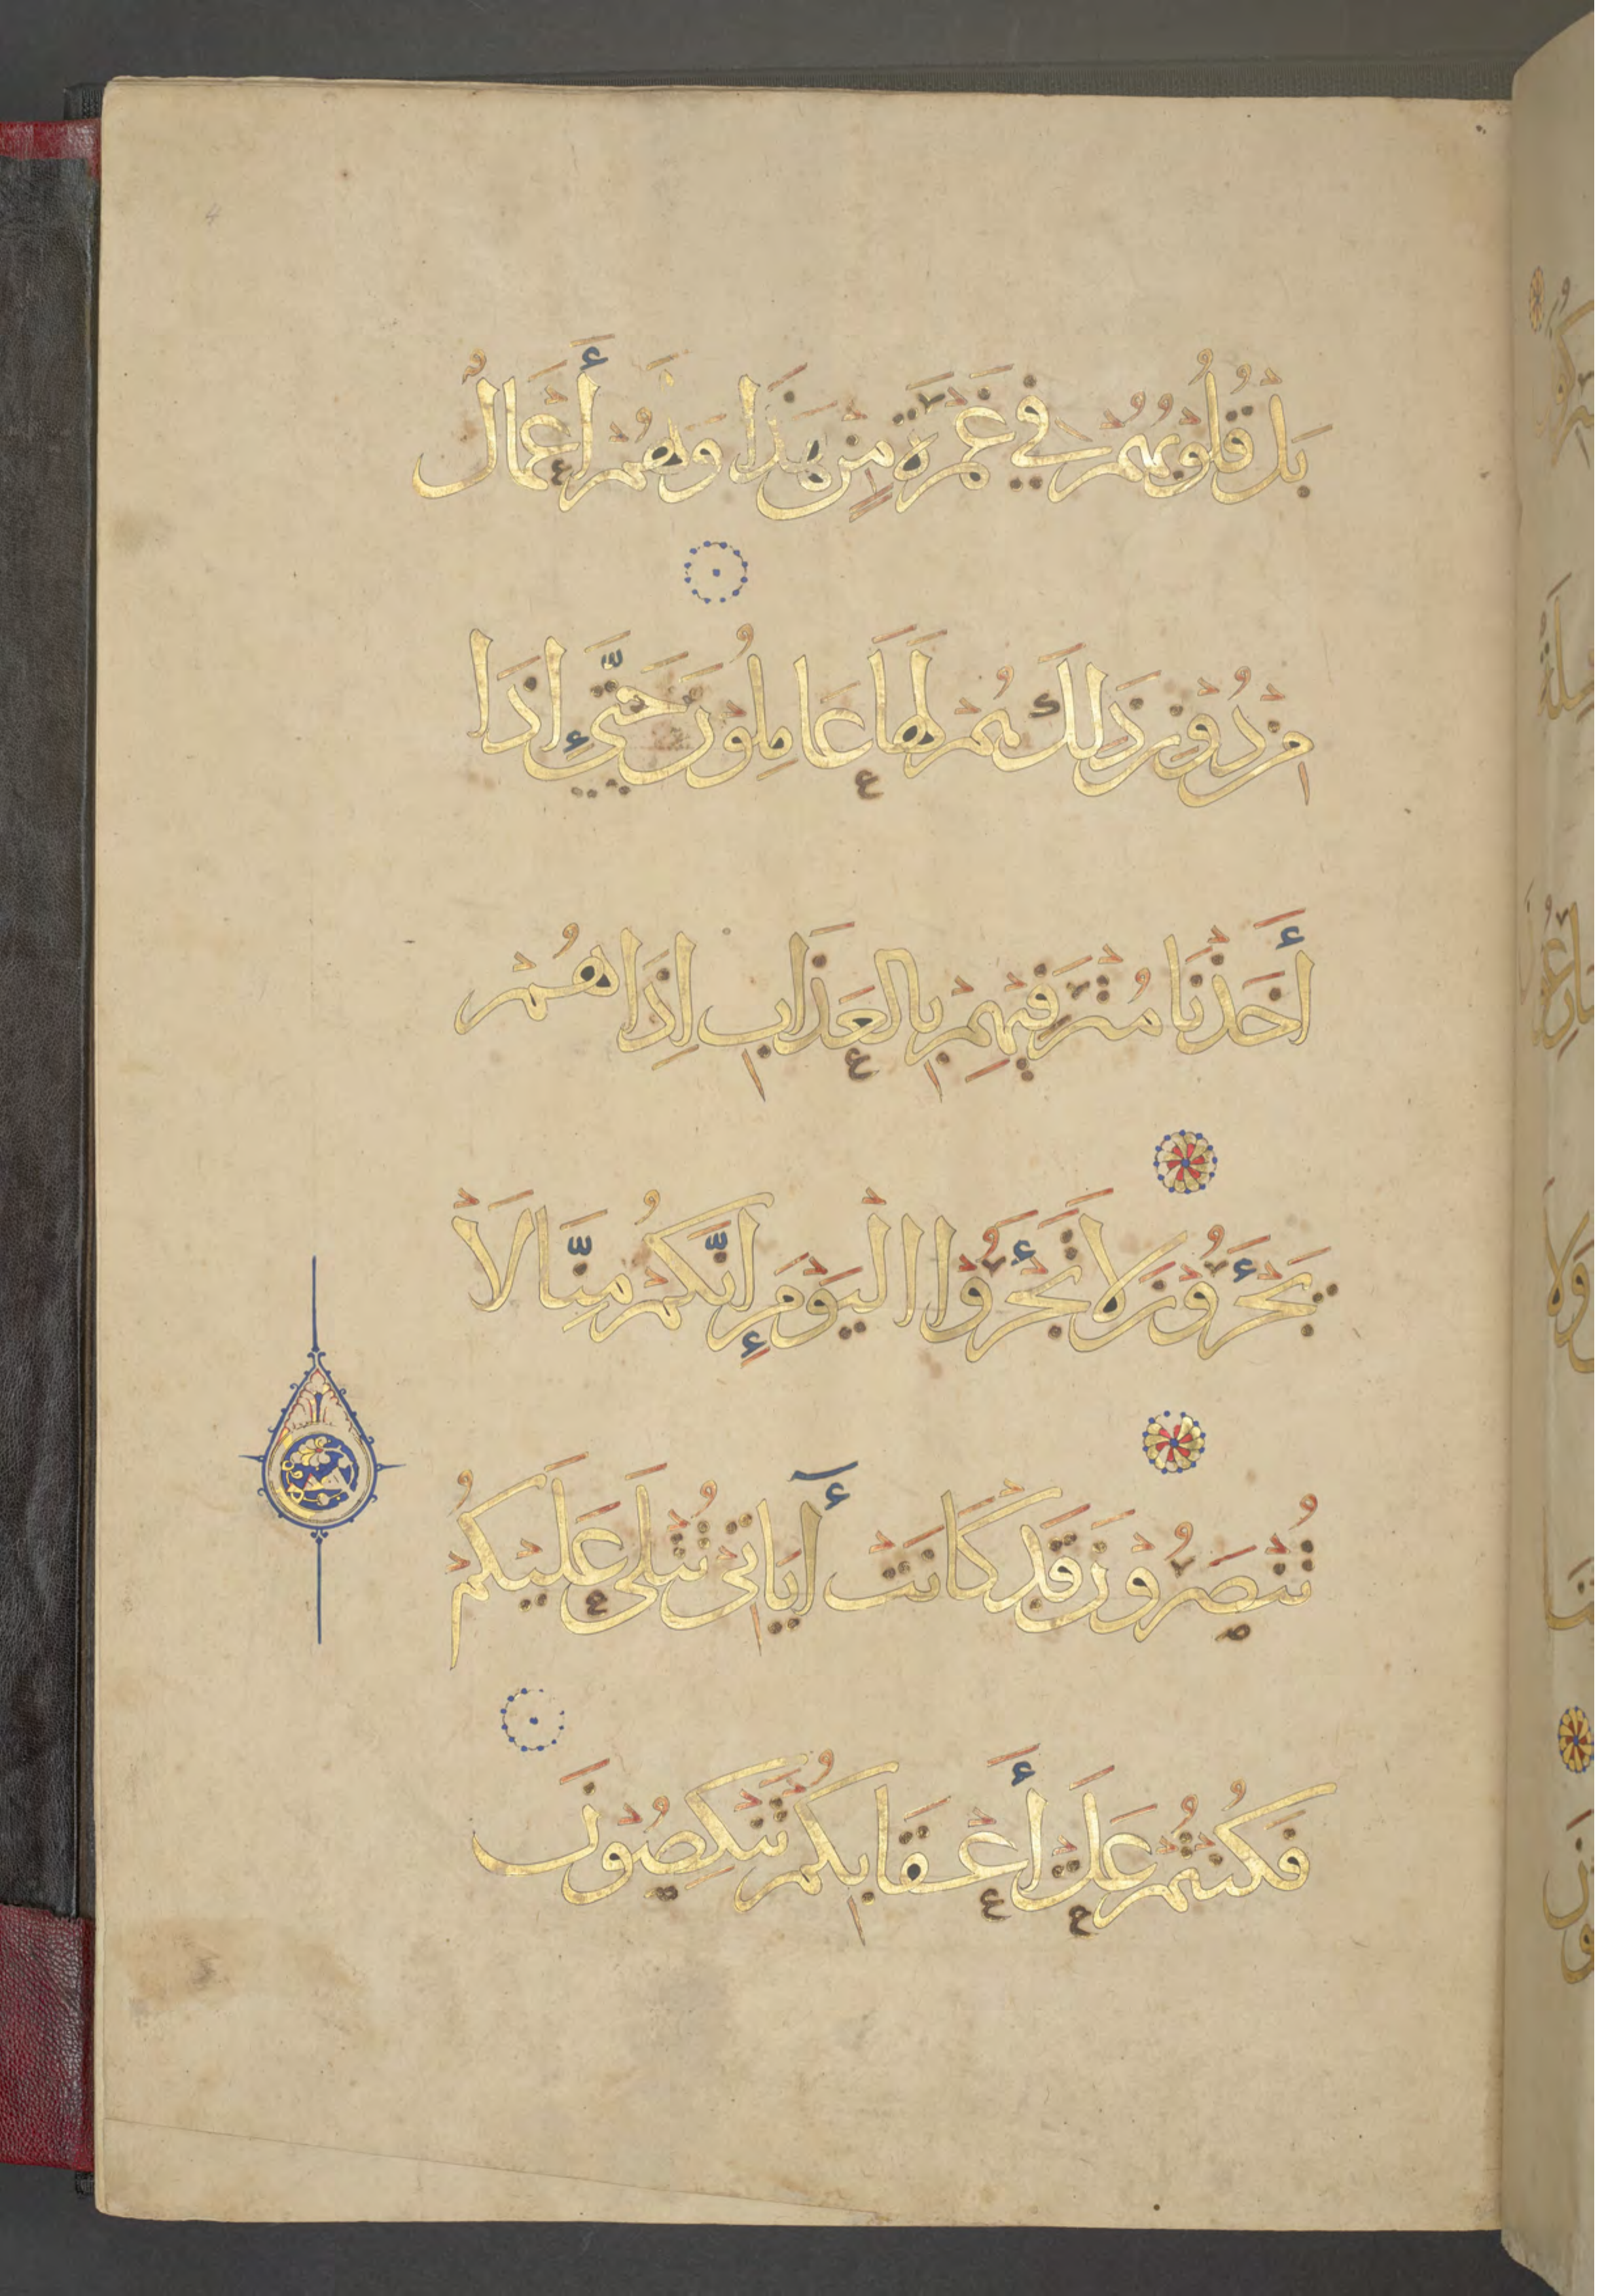 بَلْ قُلُوبُهُمْ فِي غَمْرَةٍ مِنْ هَذَا وَلَهُمْ أَعْمَالٌ
مِنْ دُونِ ذَلِكَ هُمْ لَهَا عَامِلُونَ حَتَّى إِذَا
أَخَذْنَا مُتْرَفِيهِمْ بِالْعَذَابِ إِذَا هُمْ
يَجْأَرُونَ لَا تَجْأَرُوا الْيَوْمَ إِنَّكُمْ مِنَّا لَا
تُنْصَرُونَ قَدْ كَانَتْ آيَاتِي تُتْلَى عَلَيْكُمْ
فَكُنْتُمْ عَلَى أَعْقَابِكُمْ تَنْكِصُونَ